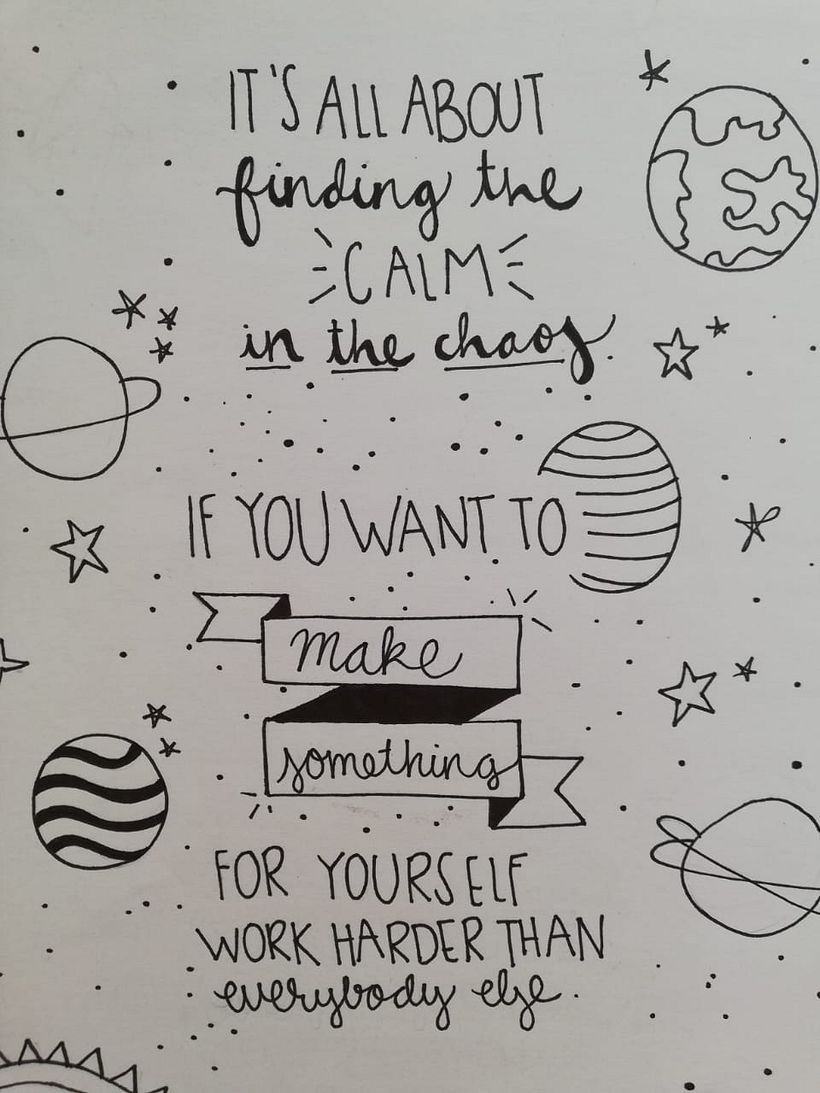 IT'S ALL ABOUT
finding the
CALM
in the chaos.
IF YOU WANT TO
make
something
FOR YOURSELF
WORK HARDER THAN
everybody else.